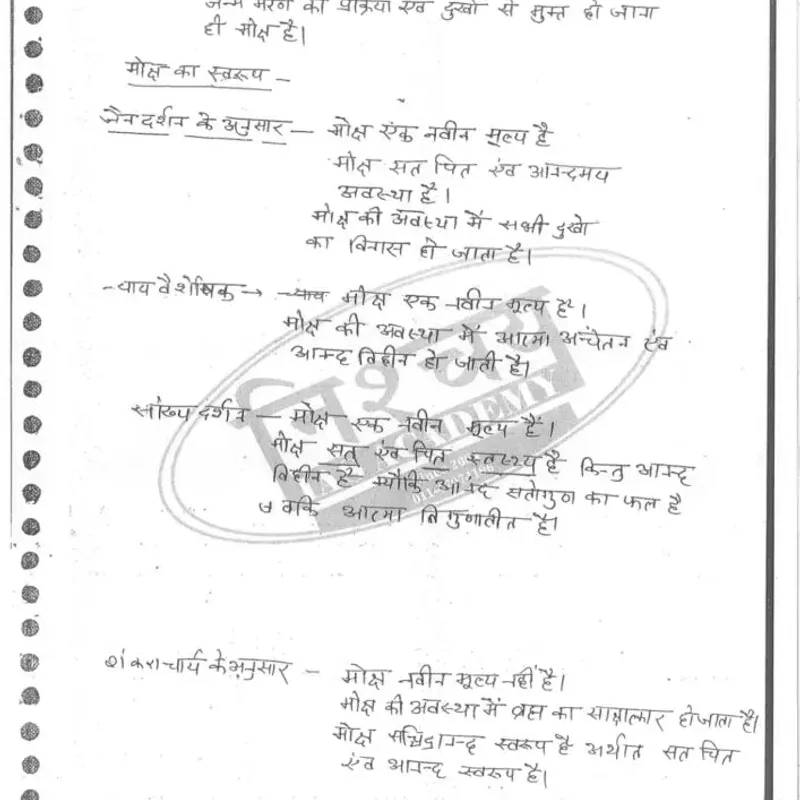 जन्म मरण की प्रक्रिया एंव दुखो से मुक्त हो जाना
ही मोक्ष है।
मोक्ष का स्वरूप -
जैन दर्शन के अनुसार - मोक्ष एक नवीन मूल्य है
मोक्ष सत चित एंव आनन्दमय
अवस्था है।
मोक्ष की अवस्था में सभी दुखो
का विनास हो जाता है।
न्याय वैशेषिक → मोक्ष एक नवीन मूल्य है।
मोक्ष की अवस्था में आत्मा अचेतन एंव
आनन्द विहीन हो जाती है।
सांख्य दर्शन - मोक्ष एक नवीन मूल्य है।
मोक्ष सत् एंव चित् स्वरूप है किन्तु आनन्द
विहीन है क्यौकि आनंद सतोगुण का फल है
जबकि आत्मा त्रिगुणातीत है।
निश्चय
ACADEMY
शंकराचार्य के अनुसार - मोक्ष नवीन मूल्य नहीं है।
मोक्ष की अवस्था में ब्रह्म का साक्षात्कार हो जाता है।
मोक्ष सच्चिदानन्द स्वरूप है अर्थात सत चित
एंव आनन्द स्वरूप है।